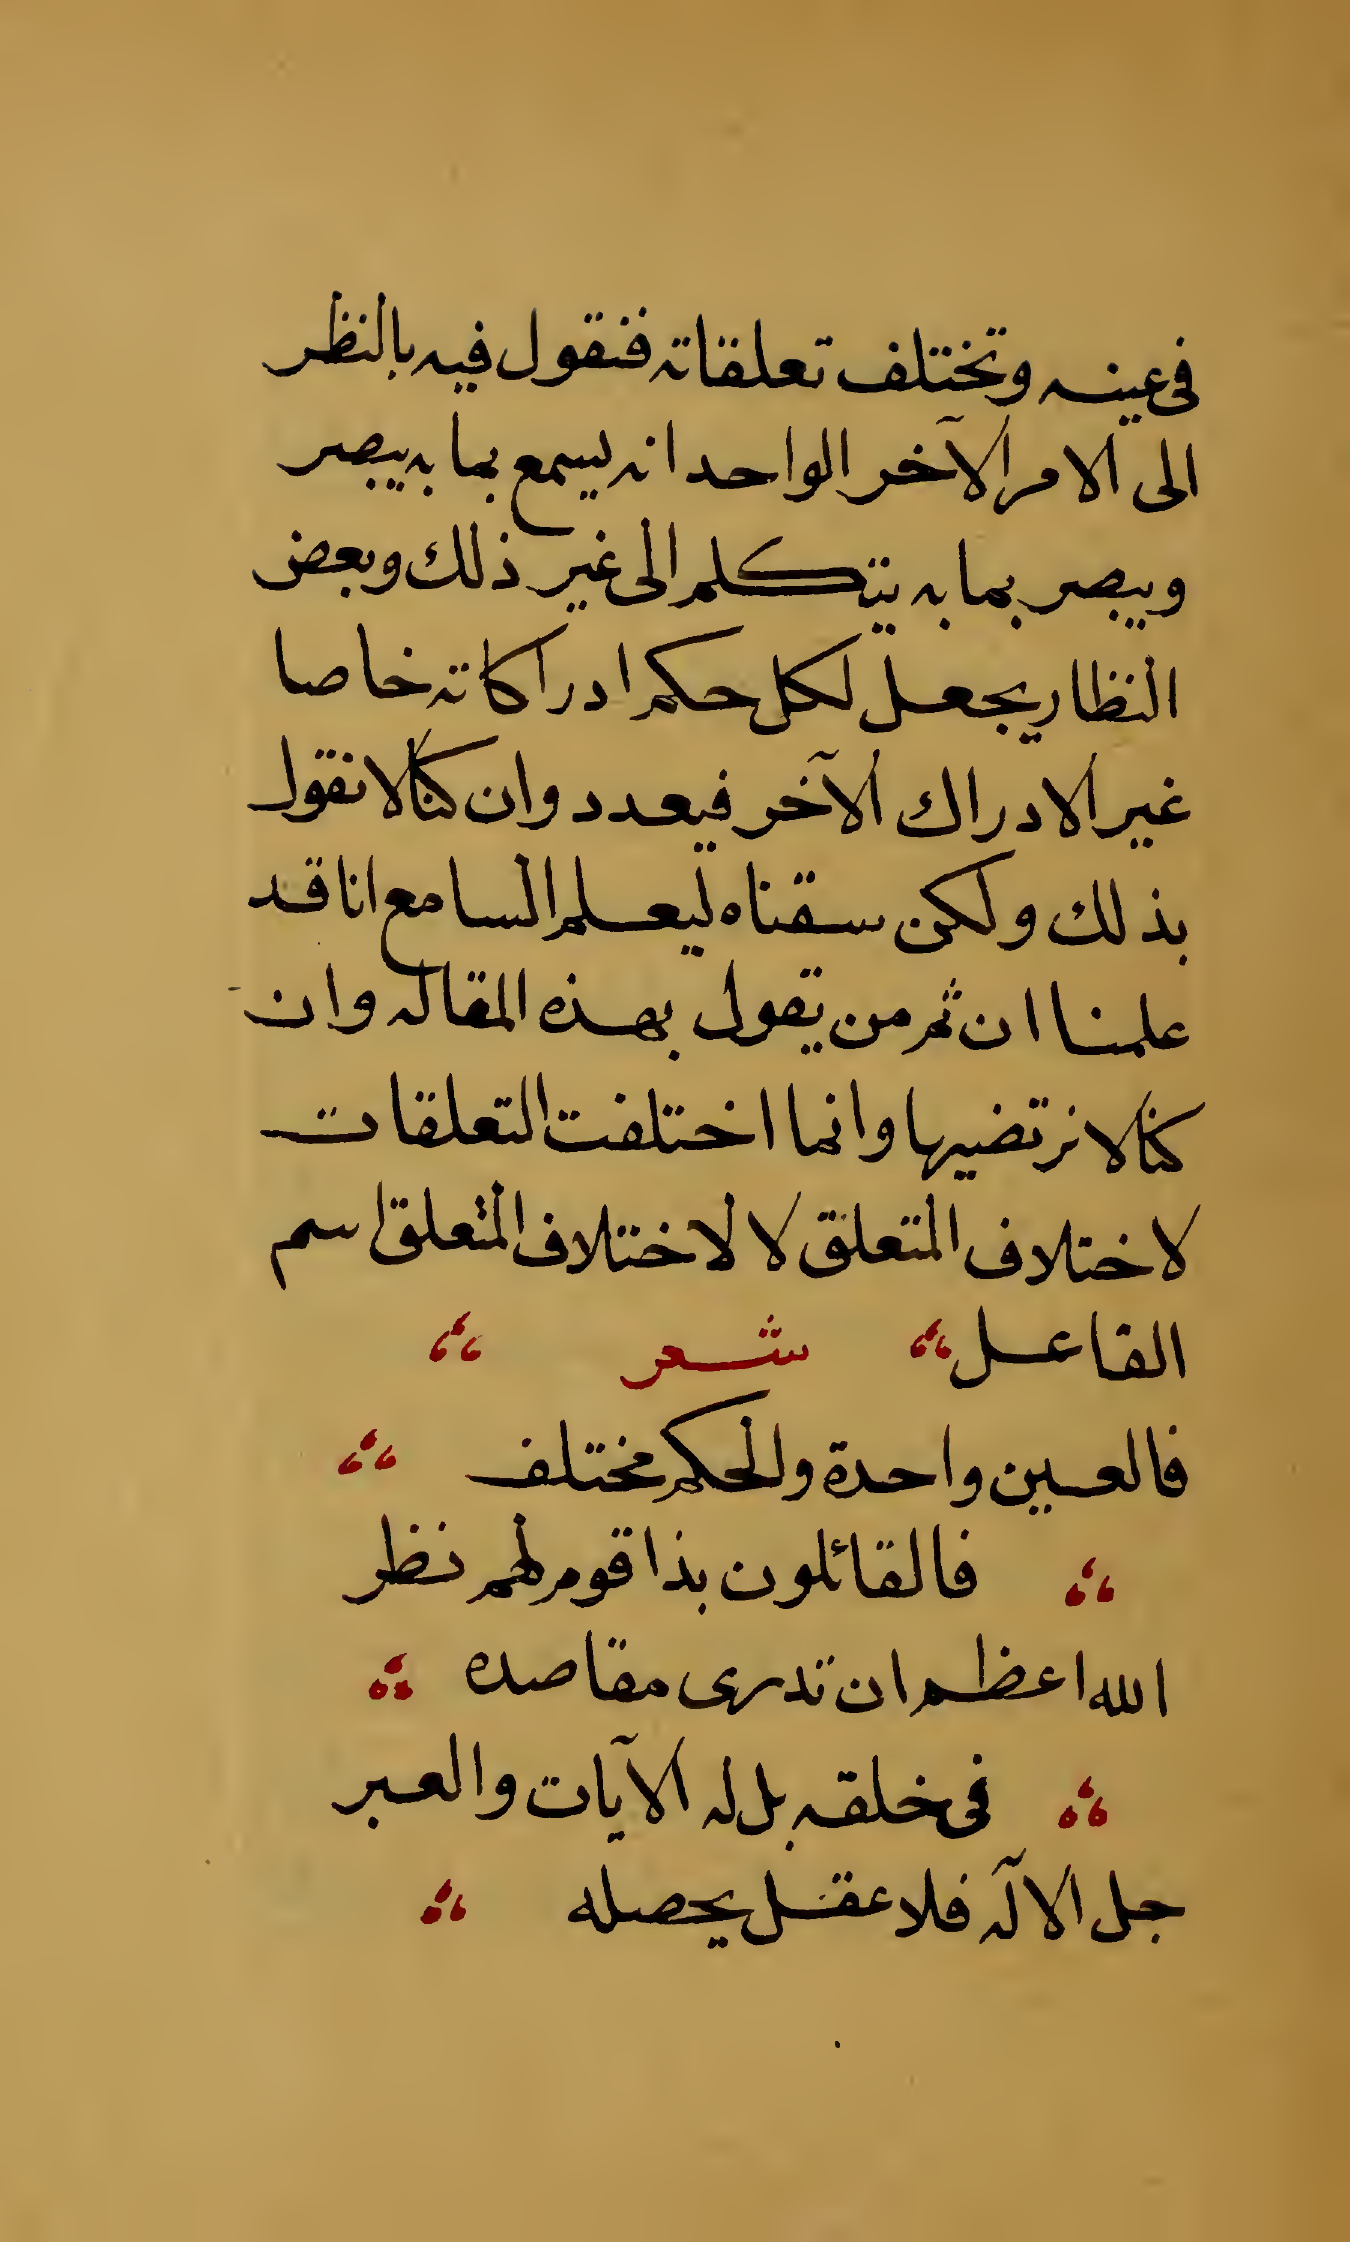 فى عينه وتختلف تعلقاته فنقول فيه بالنظر
الى الامر الآخر الواحد انه يسمع بما به يبصر
ويبصر بما به يتكلم الى غير ذلك وبعض
النظار يجعل لكل حكم ادراكاته خاصا
غير الادراك الآخر فيعدد وان كنا لا نقول
بذلك ولكن سقناه ليعلم السامع انا قد
علمنا ان ثم من يقول بهذه المقاله وان
كنا لا نرتضيها وانما اختلفت التعلقات
لاختلاف المتعلق لا لاختلاف المتعلق اسم
الفاعل شعر
فالعين واحدة والحكم مختلف
فالقائلون بذا قوم لهم نظر
الله اعظم ان تدرى مقاصده
فى خلقه بل له الآيات والعبر
جل الآله فلا عقل يحصله